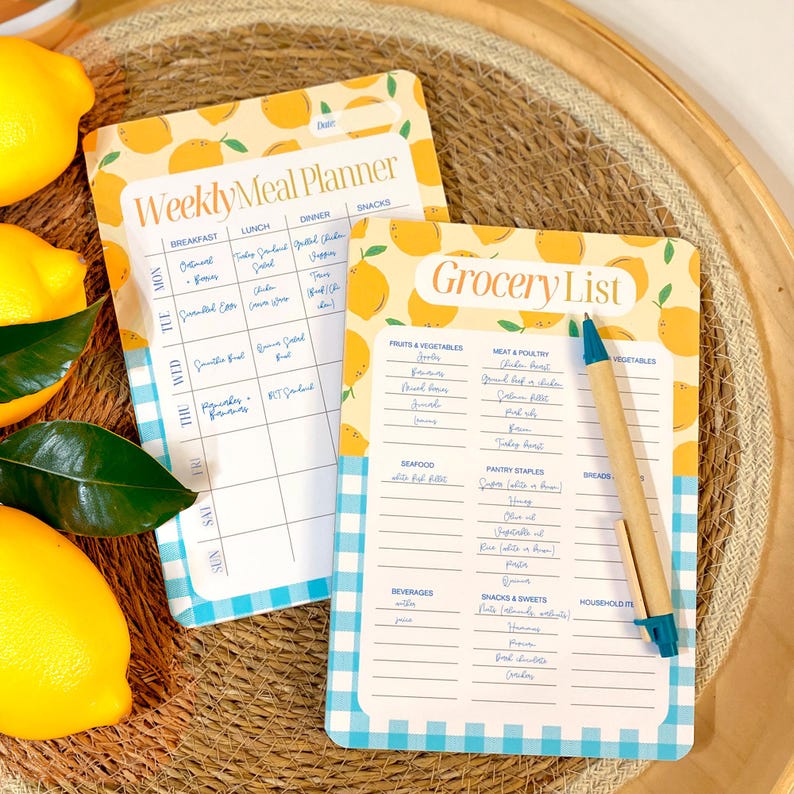 Date:
Weekly Meal Planner
BREAKFAST LUNCH DINNER SNACKS
MON Oatmeal + Berries Turkey Sandwich Salad Grilled Chicken Veggies
TUE Scrambled Eggs Chicken Caesar Wrap Tacos (Beef/Chicken)
WED Smoothie Bowl Quinoa Salad Bowl
THU Pancakes + Bananas BLT Sandwich
FRI
SAT
SUN
Grocery List
FRUITS & VEGETABLES
Apples
Bananas
Mixed berries
Avocado
Lemons
MEAT & POULTRY
Chicken breast
Ground beef or chicken
Salmon fillet
Pork ribs
Bacon
Turkey breast
VEGETABLES
SEAFOOD
white fish fillet
PANTRY STAPLES
(white or brown)
Honey
Olive oil
Vegetable oil
Rice (white or brown)
Pasta
Quinoa
BREADS
BEVERAGES
water
juice
SNACKS & SWEETS
Nuts (almonds, walnuts)
Hummus
Popcorn
Dark chocolate
Crackers
HOUSEHOLD ITE